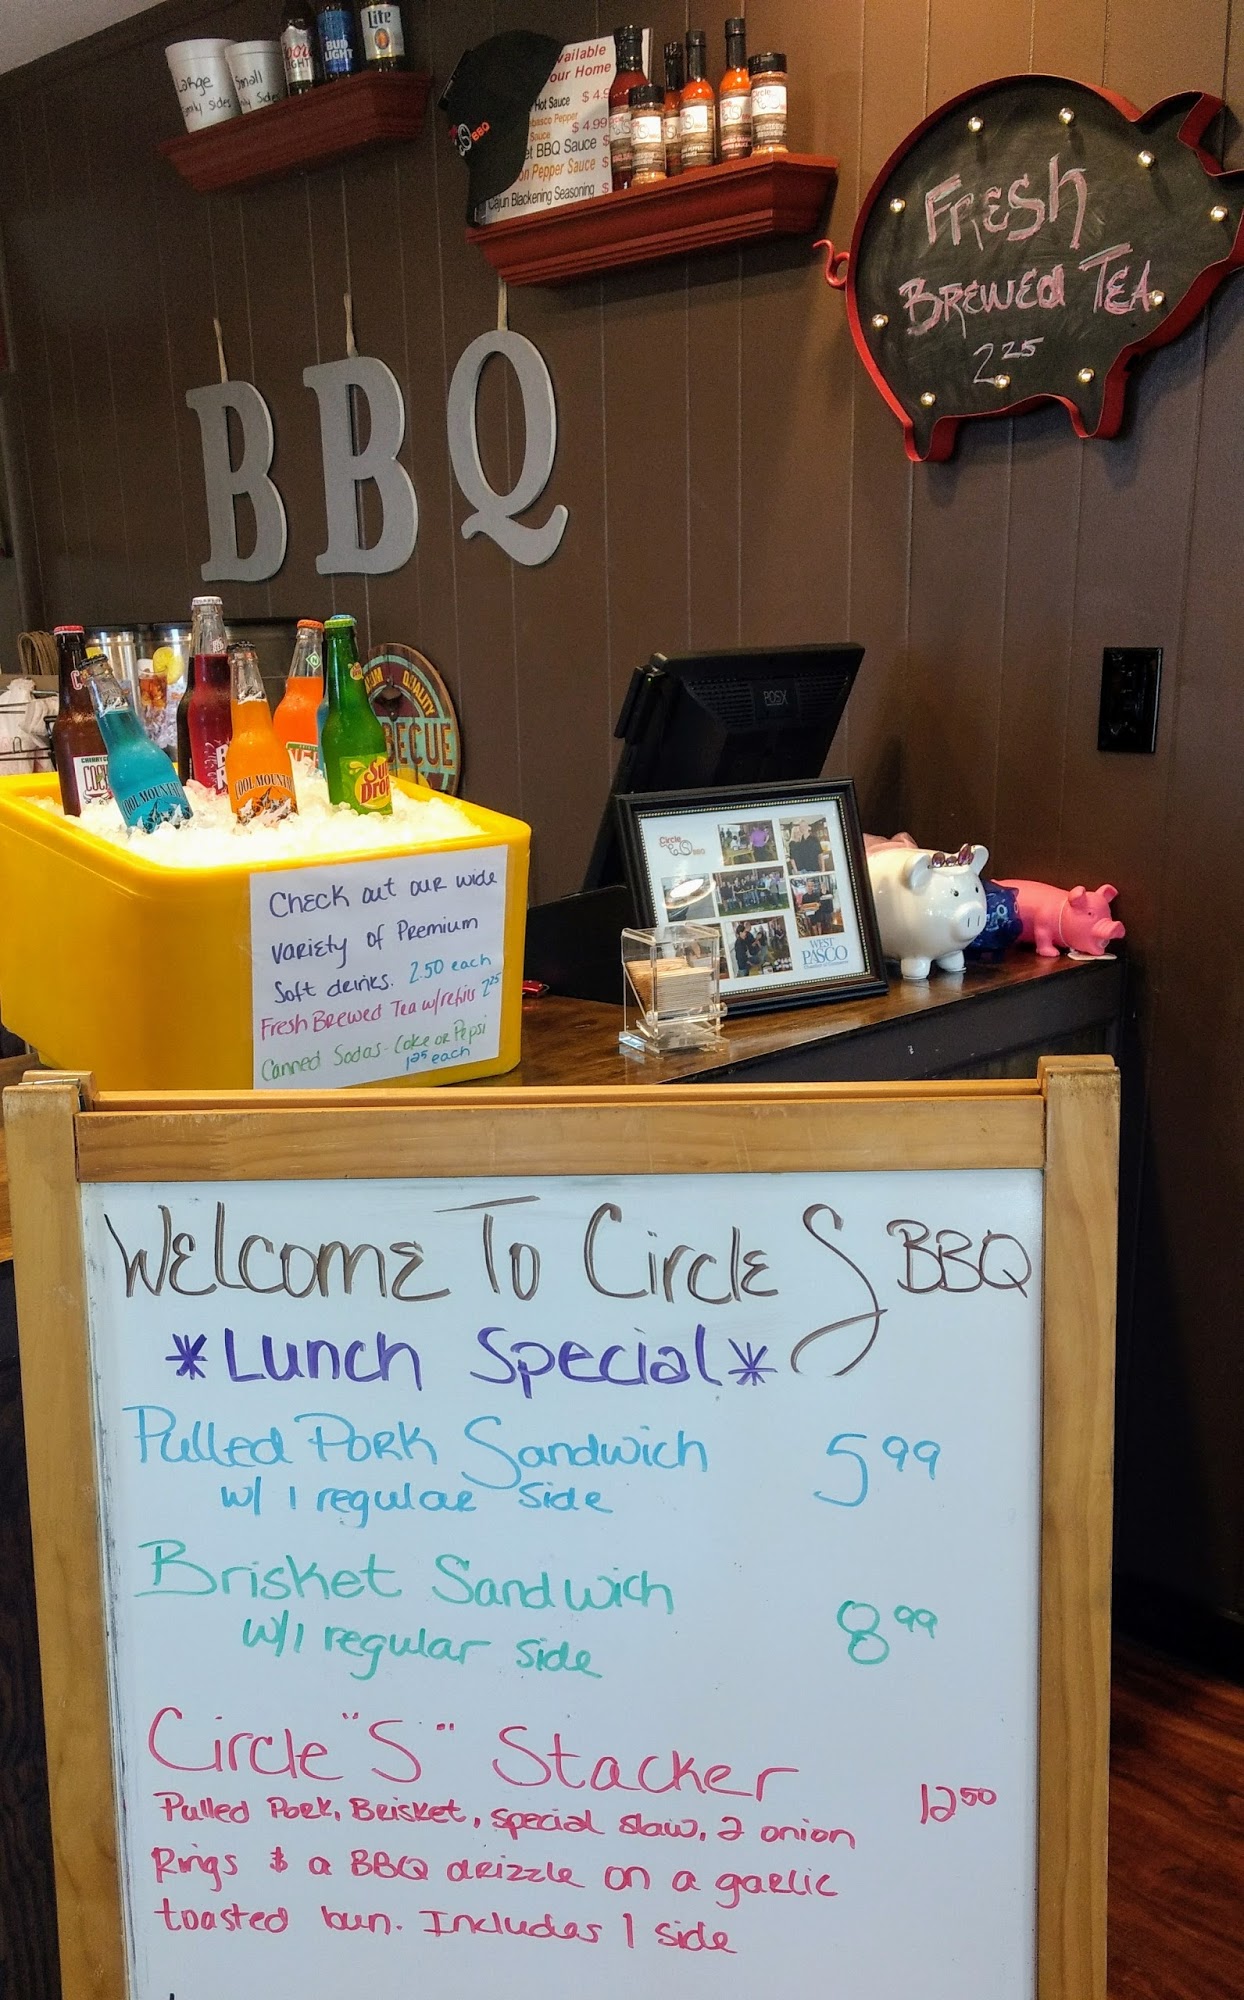 Large
Small
Lite
BUD
LIGHT
Available
Your Home
Hot Sauce $ 4.9
Pepper
Sauce $ 4.99
BBQ Sauce $
Pepper Sauce $
Cajun Blackening Seasoning $
BBQ
Circle
Fresh
Brewed Tea
2 25
BBQ
PDSX
QUALITY
BECUE
Sun
Drop
Circle
S BBQ
WEST
PASCO
Check out our wide
variety of Premium
Soft drinks. 2.50 each
Fresh Brewed Tea w/refills 2 25
Canned Sodas - Coke or Pepsi
1 25 each
Welcome To Circle S BBQ
*Lunch Special*
Pulled Pork Sandwich 5 99
w/ 1 regular side
Brisket Sandwich
w/1 regular side 8 99
Circle "S" Stacker
12 50
Pulled Pork, Brisket, special slaw, 2 onion
Rings & a BBQ drizzle on a garlic
toasted bun. Includes 1 side